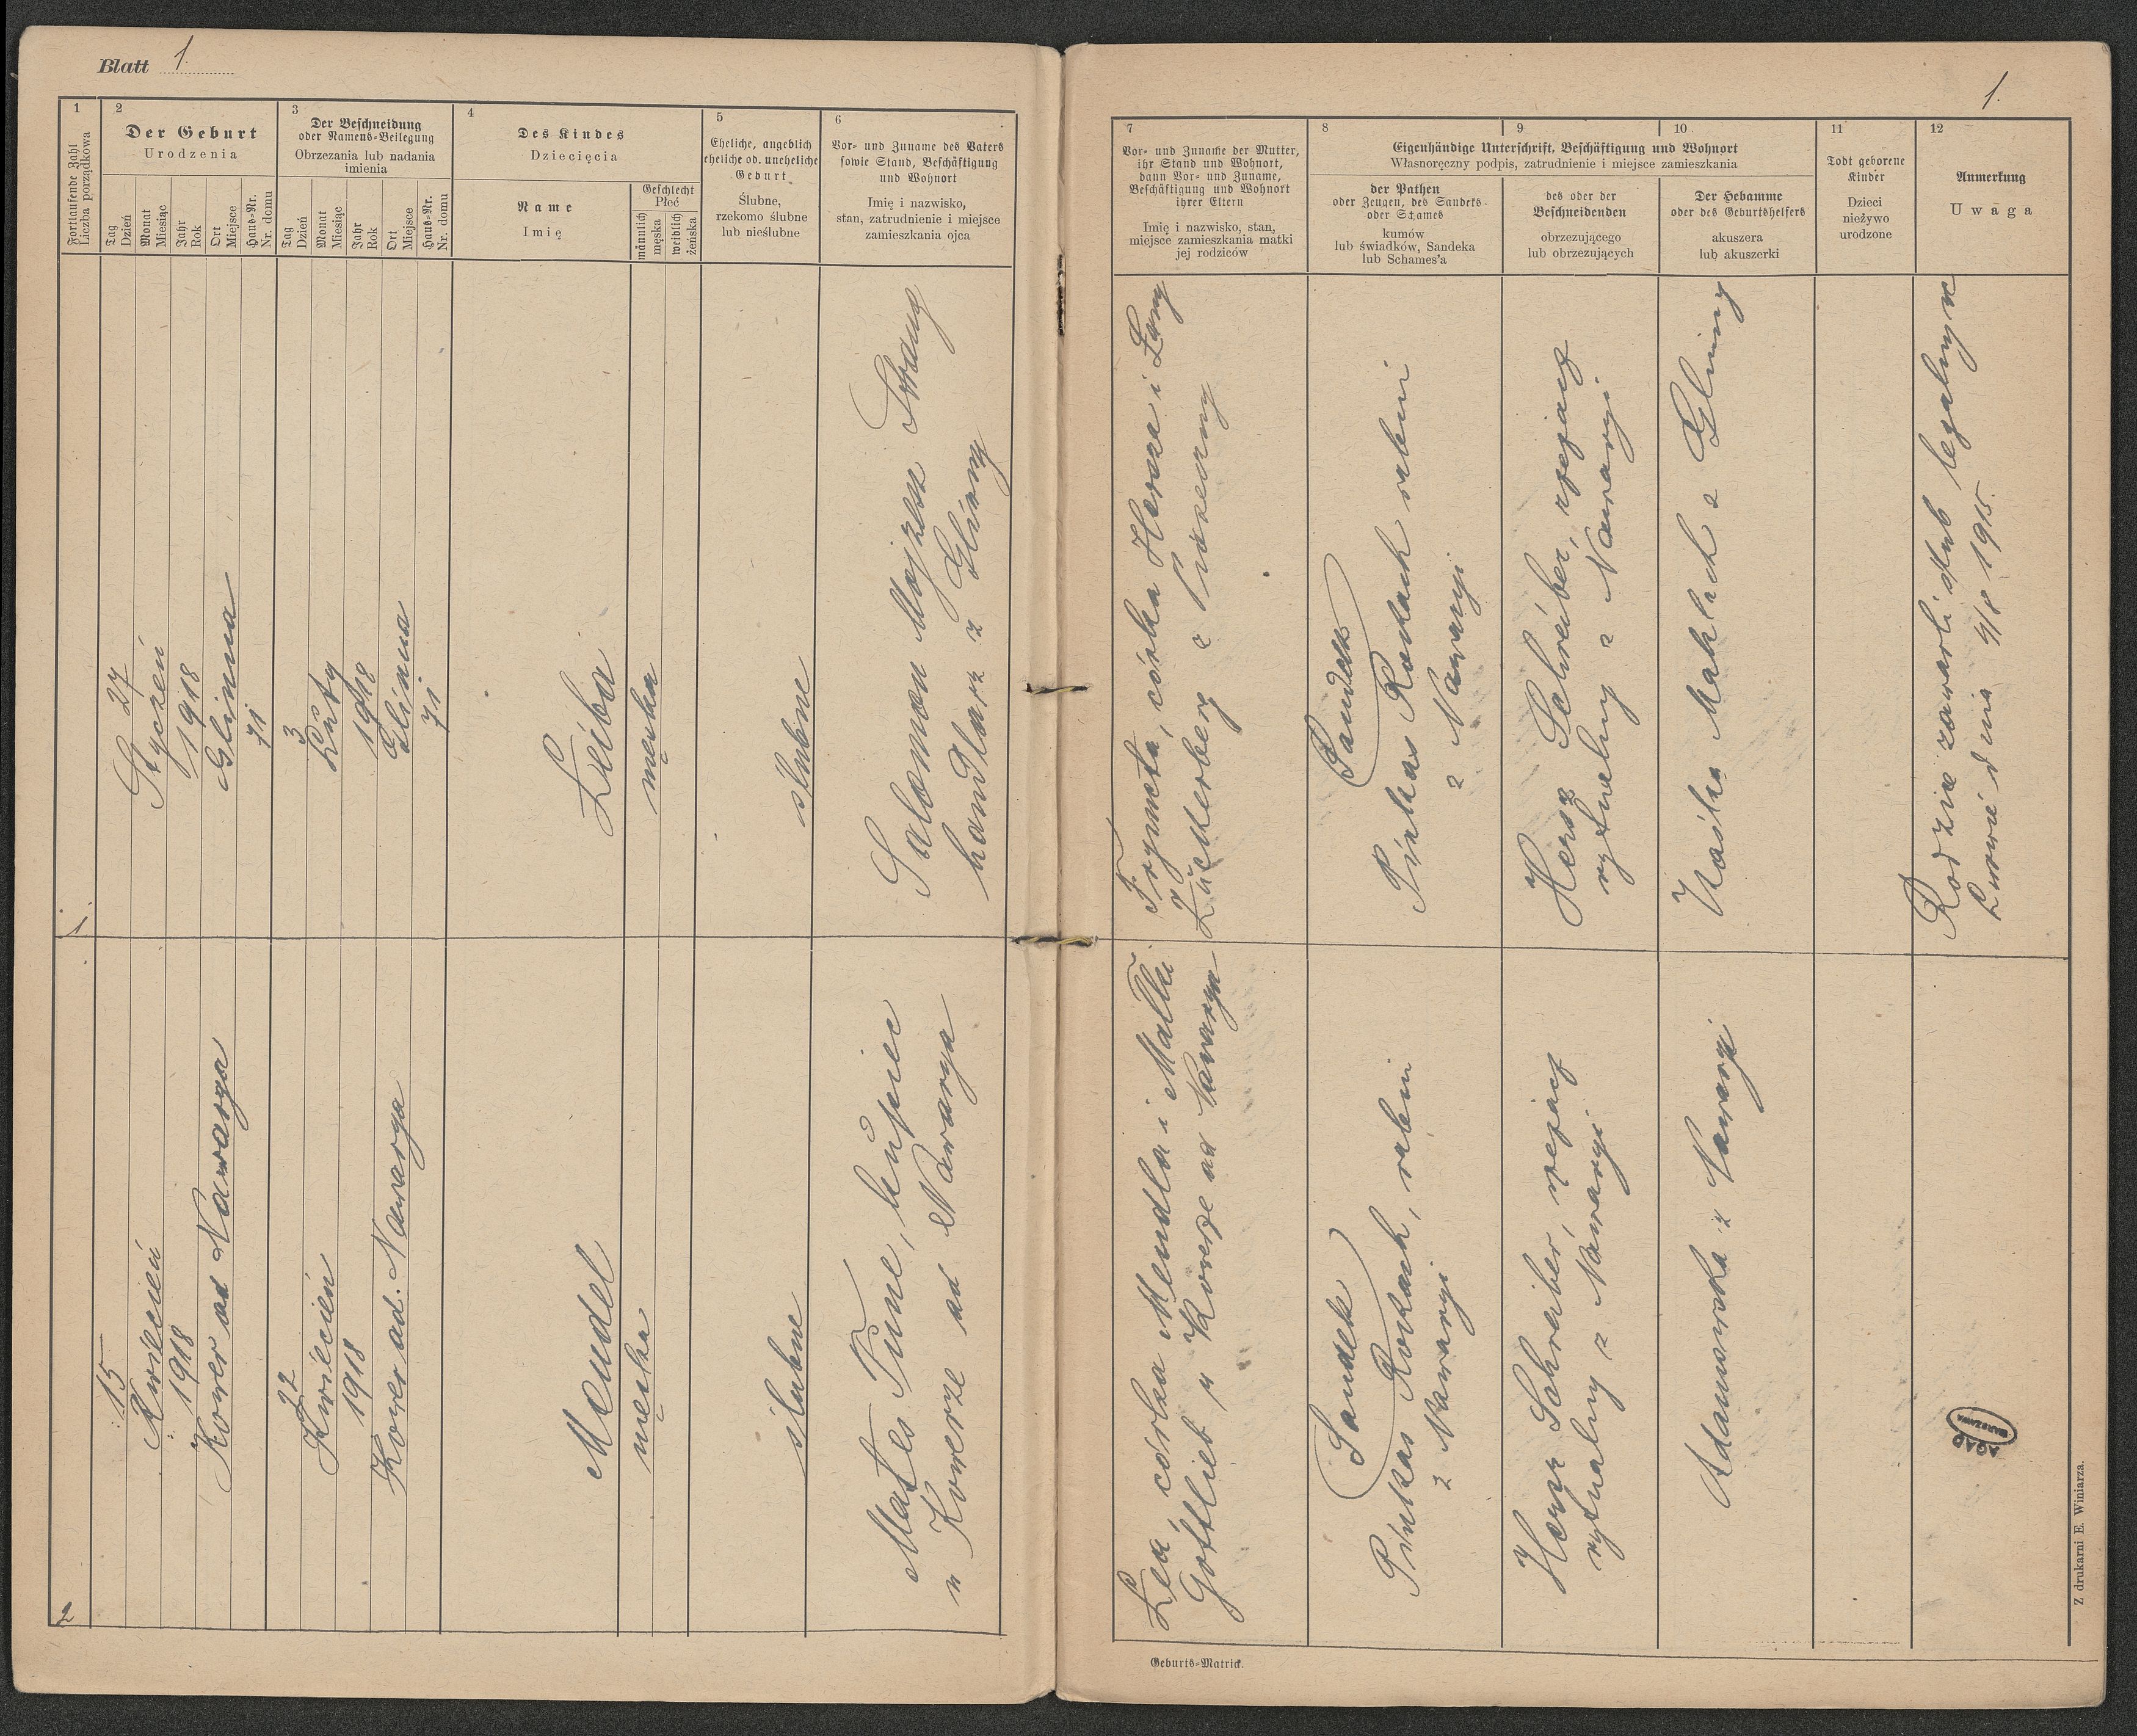 Blatt 1.
1
Fortlaufende Zahl
Liczba porządkowa
2
Der Geburt
Urodzenia
Tag
Dzień
Monat
Miesiąc
Jahr
Rok
Ort
Miejsce
Haus-Nr.
Nr. domu
3
Der Beschneidung
oder Namens-Beilegung
Obrzezania lub nadania
imienia
Tag
Dzień
Monat
Miesiąc
Jahr
Rok
Ort
Miejsce
Haus-Nr.
Nr. domu
4
Des Kindes
Dziecięcia
Name
Imię
Geschlecht
Płeć
männlich
męska
weiblich
żeńska
5
Eheliche, angeblich
eheliche od. uneheliche
Geburt
Ślubne,
rzekomo ślubne
lub nieślubne
6
Vor- und Zuname des Vaters
sowie Stand, Beschäftigung
und Wohnort
Imię i nazwisko,
stan, zatrudnienie i miejsce
zamieszkania ojca
1
27
Styczeń
1918
Glinna
71
3
Luty
1918
Glinna
71
Leiba
męska
ślubne
Salomon Mojżesz Strang
handlarz z Glinny
2
15
Kwiecień
1918
Kower ad Nawarya
22
Kwiecień
1918
Kower ad. Nawarya
Mendel
męska
ślubne
Mates Tune, kupiec
w Kowerze ad Nawarya
1.
7
Vor- und Zuname der Mutter,
ihr Stand und Wohnort,
dann Vor- und Zuname,
Beschäftigung und Wohnort
ihrer Eltern
Imię i nazwisko, stan,
miejsce zamieszkania matki
jej rodziców
Eigenhändige Unterschrift, Beschäftigung und Wohnort
Własnoręczny podpis, zatrudnienie i miejsce zamieszkania
8
der Pathen
oder Zeugen, des Sandeks-
oder Stames
kumów
lub świadków, Sandeka
lub Schames'a
9
des oder der
Beschneidenden
obrzezującego
lub obrzezujących
10
Der Hebamme
oder des Geburtshelfers
akuszera
lub akuszerki
11
Todt geborene
Kinder
Dzieci
nieżywo
urodzone
12
Anmerkung
Uwaga
Frymeta, córka Hersza i
Zuckerberg z
Sandek
Pinkas Rokach rabin
z Nawaryi
Hersz Schreiber, rzezacz
rytualny z Nawaryi
Kaśka z Glinny
Rodzice zawarli ślub legalny w
Lwowie dnia 4/8 1915.
Lea, córka Mendla i Malki
Gottlieb w Kowerze ad Nawarya
Sandek
Pinkas Rokach, rabin
z Nawaryi
Hersz Schreiber, rzezacz
rytualny z Nawaryi
Adamowska z Nawaryi
AGAD
WARSZAWA
Geburts-Matrick.
Z drukarni E. Winiarza.